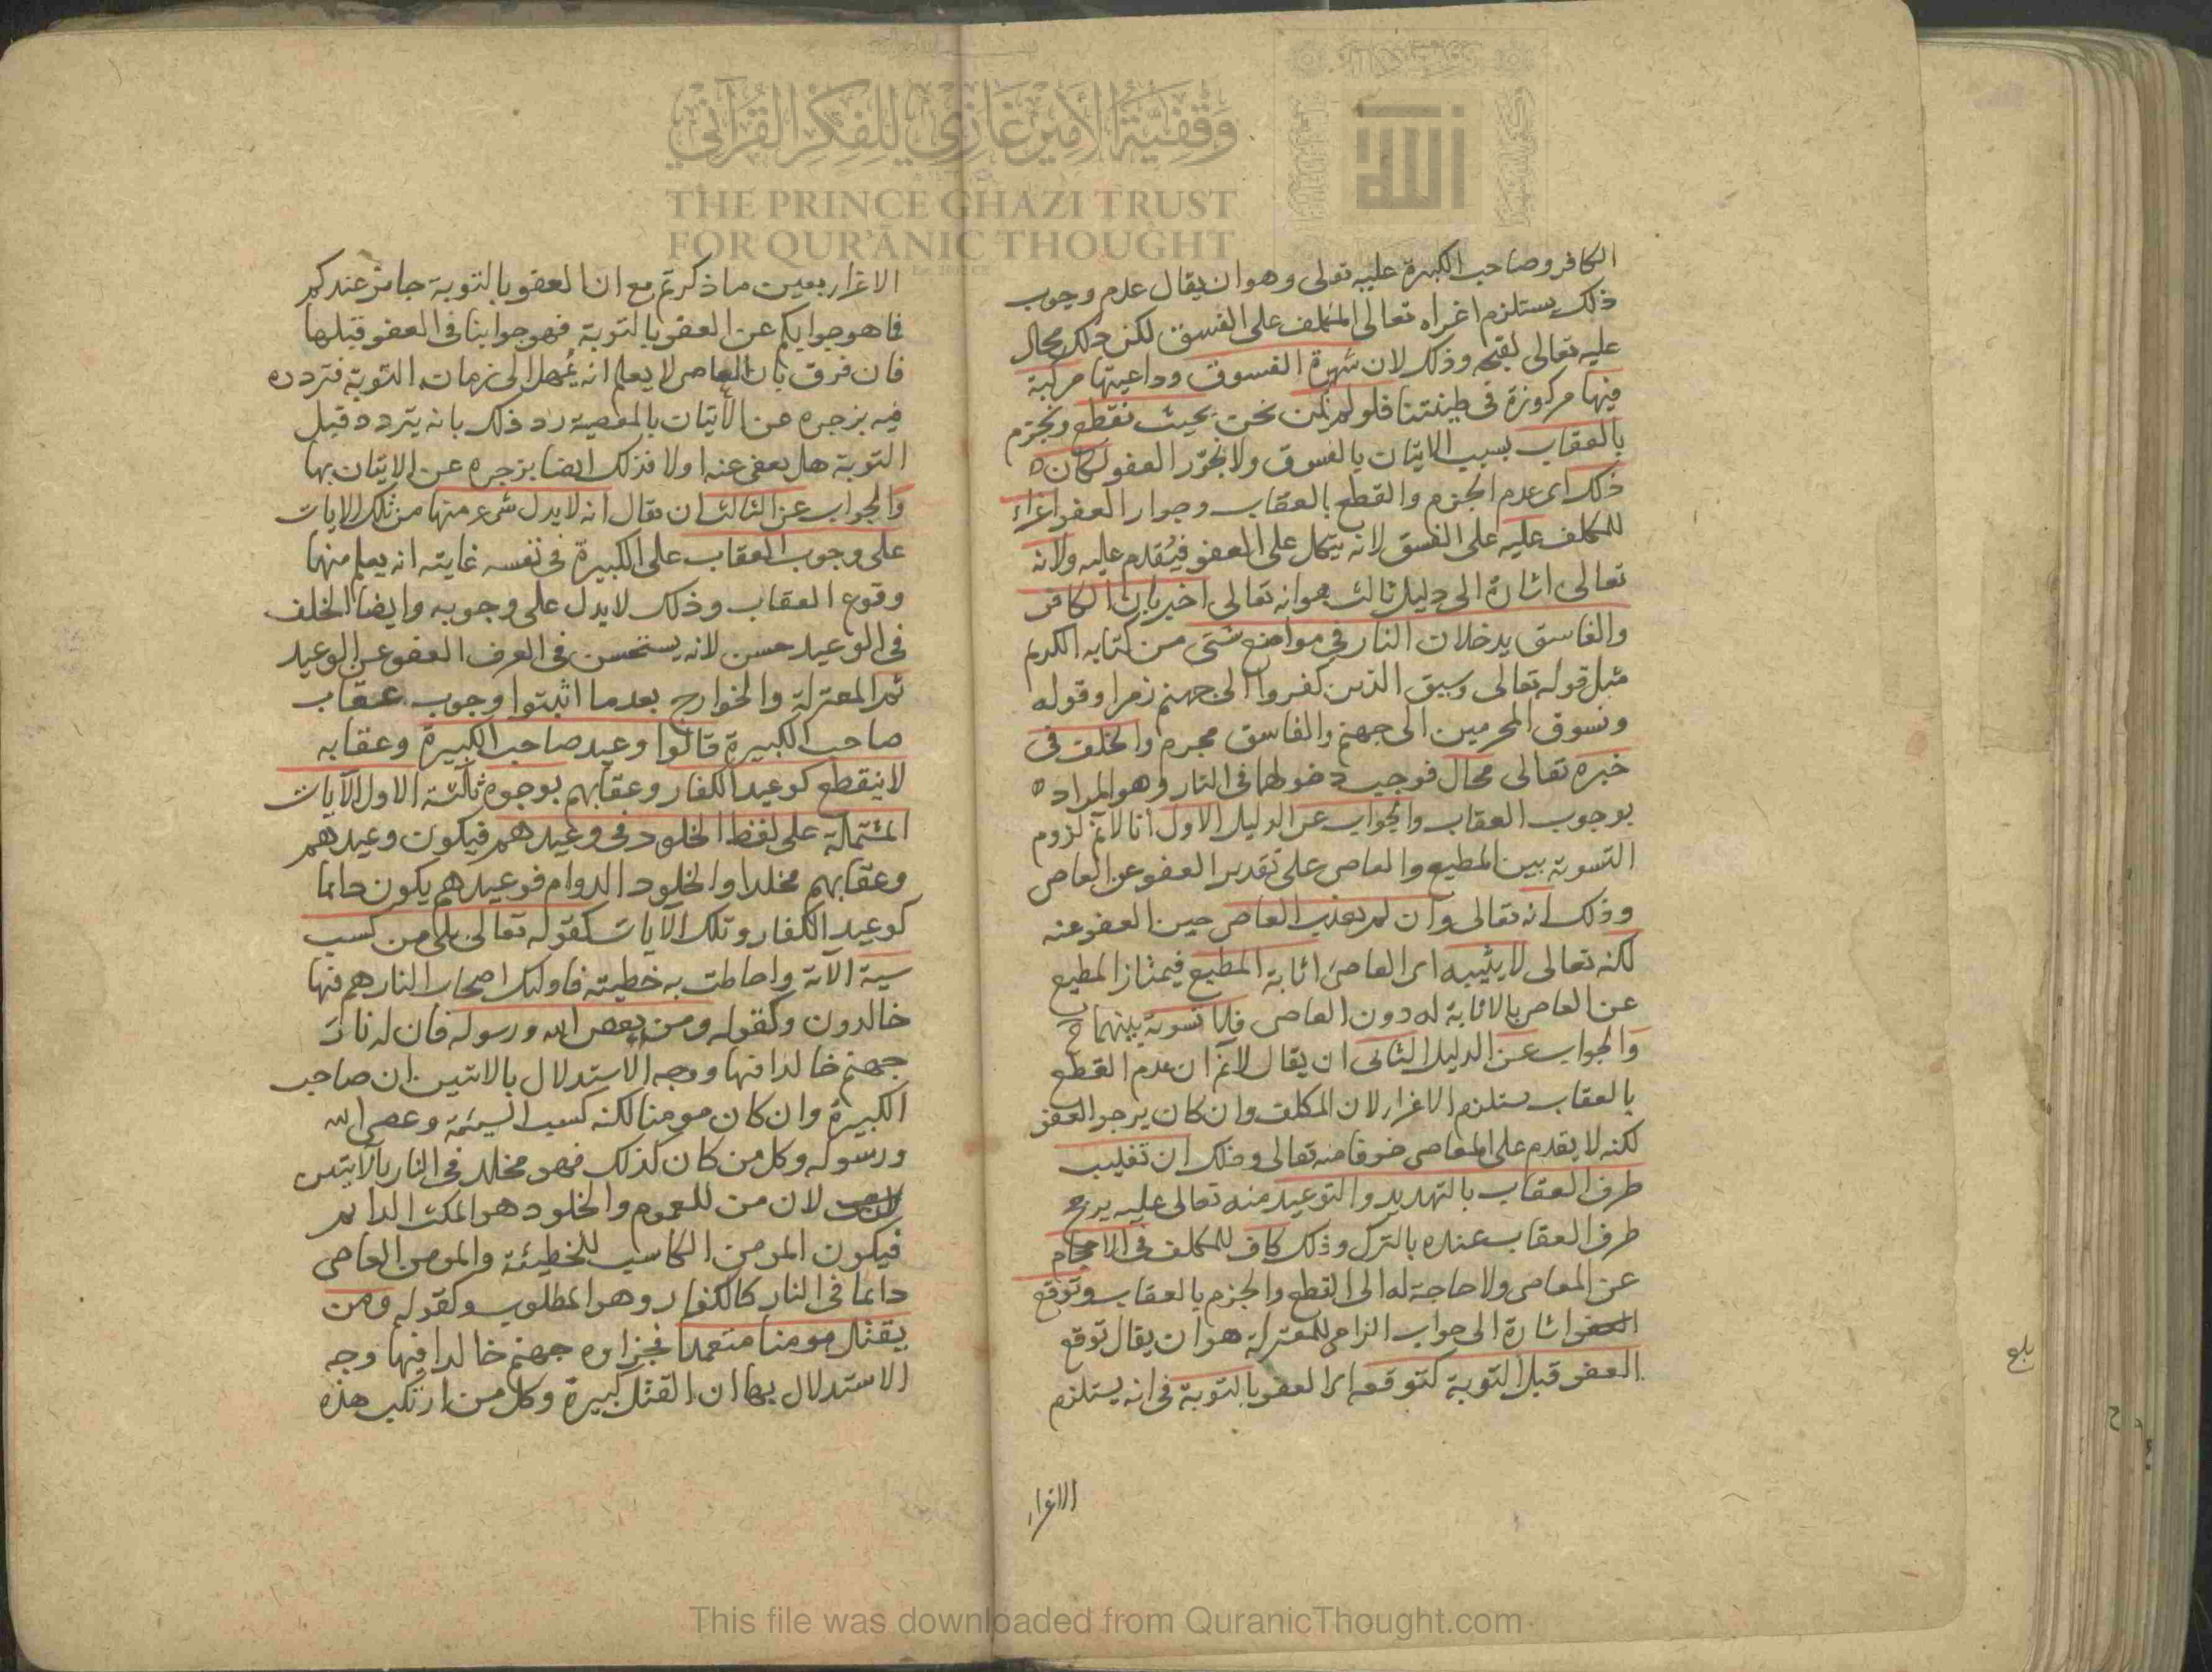 وقفية الأمير غازي للفكر القرآني
THE PRINCE GHAZI TRUST
FOR QUR'ĀNIC THOUGHT
الكافر وصاحب الكبيرة عليه تعالى وهو ان يقال عدم وجوب
ذلك يستلزم اغراه تعالى المكلف على الفسق لكن ذلك محال
عليه تعالى لقبحه وذلك لان شهوة الفسوق وداعيتها مركبة
فيها مركوزة في طينتنا فلو لم نكن نحن بحيث نقطع ونجزم
بالعقاب بسبب الاتيان بالفسوق ولا نجوّز العفو لكان
ذلك اى عدم الجزم والقطع بالعقاب وجواز العفو اغراء
للمكلف عليه على الفسق لانه يتكل على العفو فيُقدم عليه ولانه
تعالى اشارة الى دليل ثالث هو انه تعالى اخبر بان الكافر
والفاسق يدخلان النار في مواضع شتى من كتابه الكريم
مثل قوله تعالى وسيق الذين كفروا الى جهنم زمرا وقوله
ونسوق المجرمين الى جهنم والفاسق مجرم والخلف في
خبره تعالى محال فوجب دخولهما في النار وهو المراد
بوجوب العقاب والجواب عن الدليل الاول انا لانم لزوم
التسوية بين المطيع والعاصى على تقدير العفو عن العاصى
وذلك انه تعالى وان لم يعذب العاصى حين العفو عنه
لكنه تعالى لا يثيبه اى العاصى اثابة المطيع فيمتاز المطيع
عن العاصى بالاثابة له دون العاصى فلا تسوية بينهما ح
والجواب عن الدليل الثانى ان يقال لانم ان عدم القطع
بالعقاب يستلزم الاغرار لان المكلف وان كان يرجو العفو
لكنه لا يقدم على المعاصى خوفا منه تعالى وذلك ان تغليب
طرف العقاب بالتهديد والتوعيد منه تعالى عليه يرجح
طرف العقاب عنده بالترك وذلك كاف للمكلف في الاحجام
عن المعاصى ولا حاجة له الى القطع والجزم بالعقاب وتوقع
العفو اشارة الى جواب الزامى للمعتزلة هو ان يقال توقع
العفو قبل التوبة كتوقعه اى العفو بالتوبة في انه يستلزم
الاغرار
الاغرار بعين ما ذكرتم مع ان العفو بالتوبة جائز عندكم
فما هو جوابكم عن العفو بالتوبة فهو جوابنا في العفو قبلها
فان فرق بان العاصى لا يعلم انه يُمهل الى زمان التوبة فتردده
فيه يزجره عن الاتيان بالمعصية رد ذلك بانه يتردد قبل
التوبة هل يعفى عنه اولا فذلك ايضا يزجره عن الاتيان بها
والجواب عن الثالث ان يقال انه لا يدل شئ منها من تلك الايات
على وجوب العقاب على الكبيرة في نفسه غايته انه يعلم منها
وقوع العقاب وذلك لا يدل على وجوبه وايضا الخلف
في الوعيد حسن لانه يستحسن في العرف العفو عن الوعيد
ثم المعتزلة والخوارج بعدما اثبتوا وجوب عقاب
صاحب الكبيرة قالوا وعيد صاحب الكبيرة وعقابه
لا ينقطع كوعيد الكفار وعقابهم بوجوه ثلثة الاول الآيات
المشتملة على لفظ الخلود في وعيدهم فيكون وعيدهم
وعقابهم مخلدا والخلود الدوام فوعيدهم يكون دائما
كوعيد الكفار وتلك الآيات كقوله تعالى بلى من كسب
سية الآتة واحاطت به خطيته فاولئك اصحاب النار هم فيها
خالدون وكقوله ومن يعص الله ورسوله فان له نار
جهنم خالدا فيها ووجه الاستدلال بالايتين ان صاحب
الكبيرة وان كان مومنا لكنه كسب السيئة وعصى الله
ورسوله وكل من كان كذلك فهو مخلد في النار بالآيتين
لان من للعموم والخلود هو المكث الدائم
فيكون المومن الكاسب للخطيئة والمومن العاصى
دائما في النار كالكفار وهو المطلوب وكقوله ومن
يقتل مومنا متعمدا فجزاوه جهنم خالدا فيها وجه
الاستدلال بها ان القتل كبيرة وكل من ارتكب هذه
بلغ
This file was downloaded from QuranicThought.com